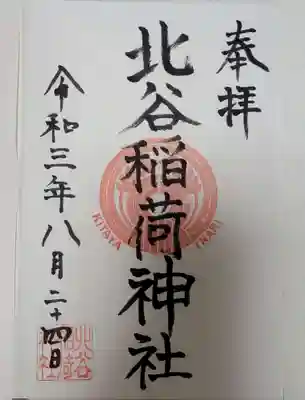 奉拝
北谷稲荷神社
KITAYA INARI
令和三年八月二十四日
北谷稲荷社